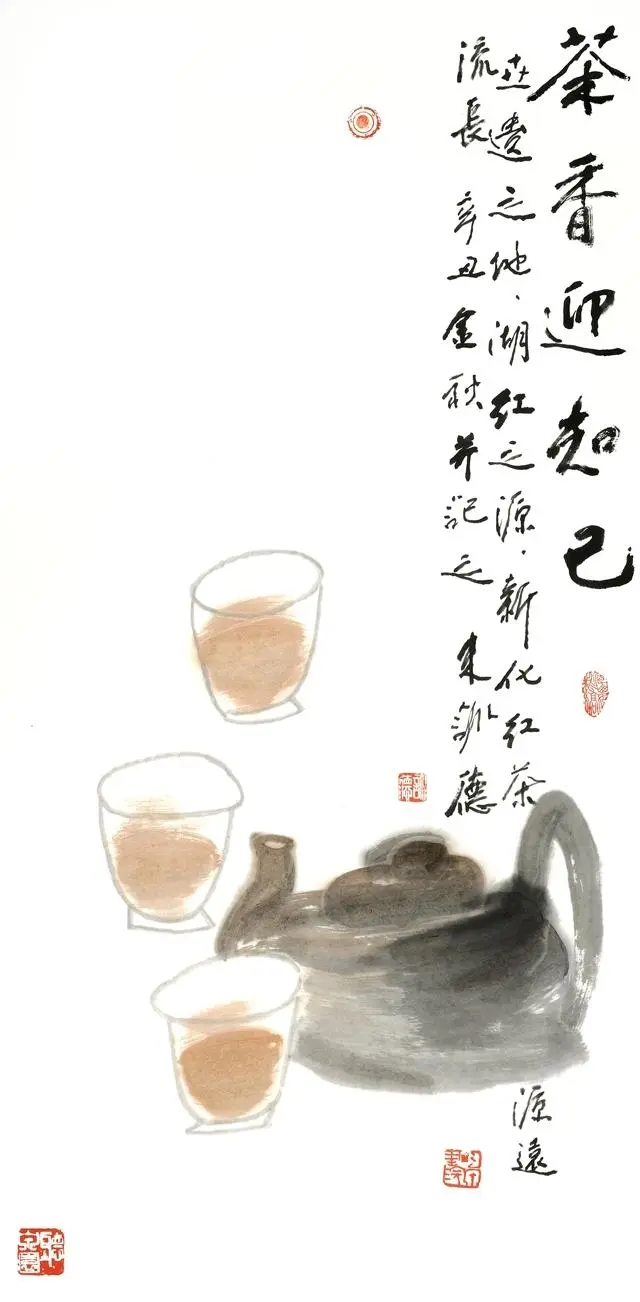 茶香迎知己
世遺之地、湖红之源、新化红茶
源遠
流長 辛丑金秋并記之 朱訓德